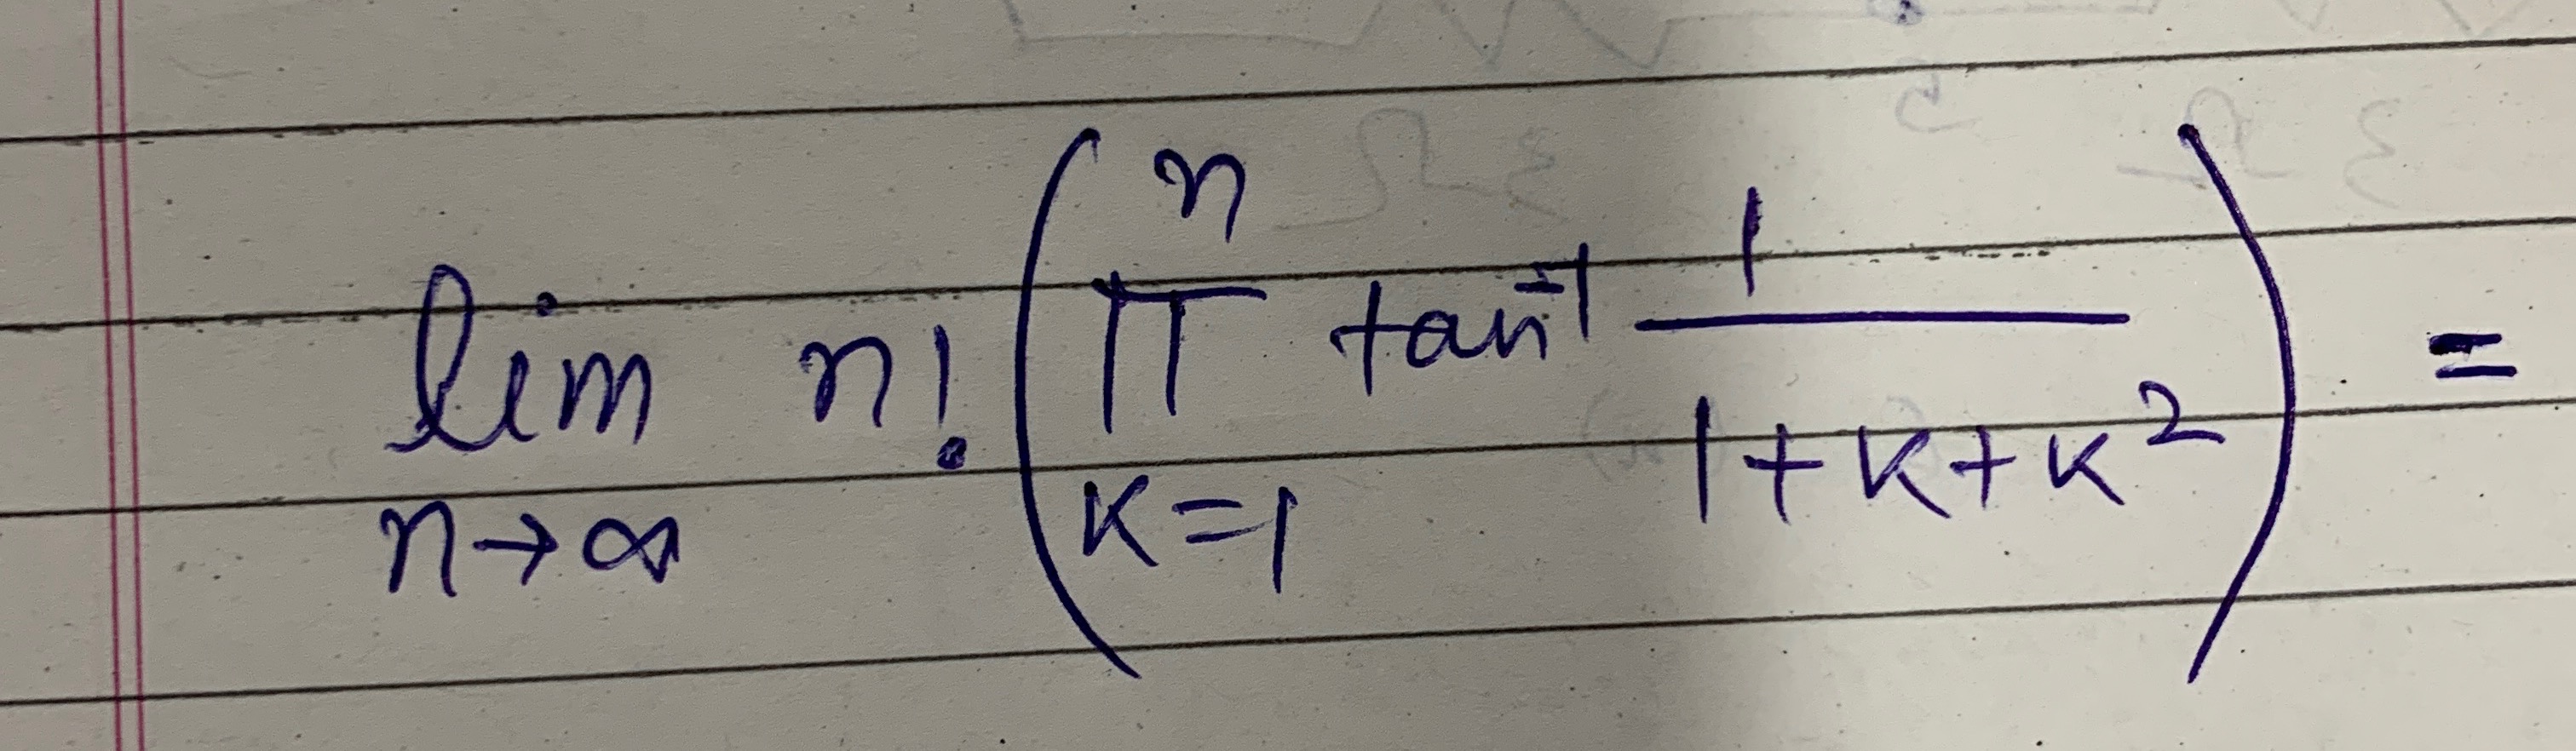 lim n→∞ n! ( n ∏ K=1 tan⁻¹ 1/(1+K+K²) ) =